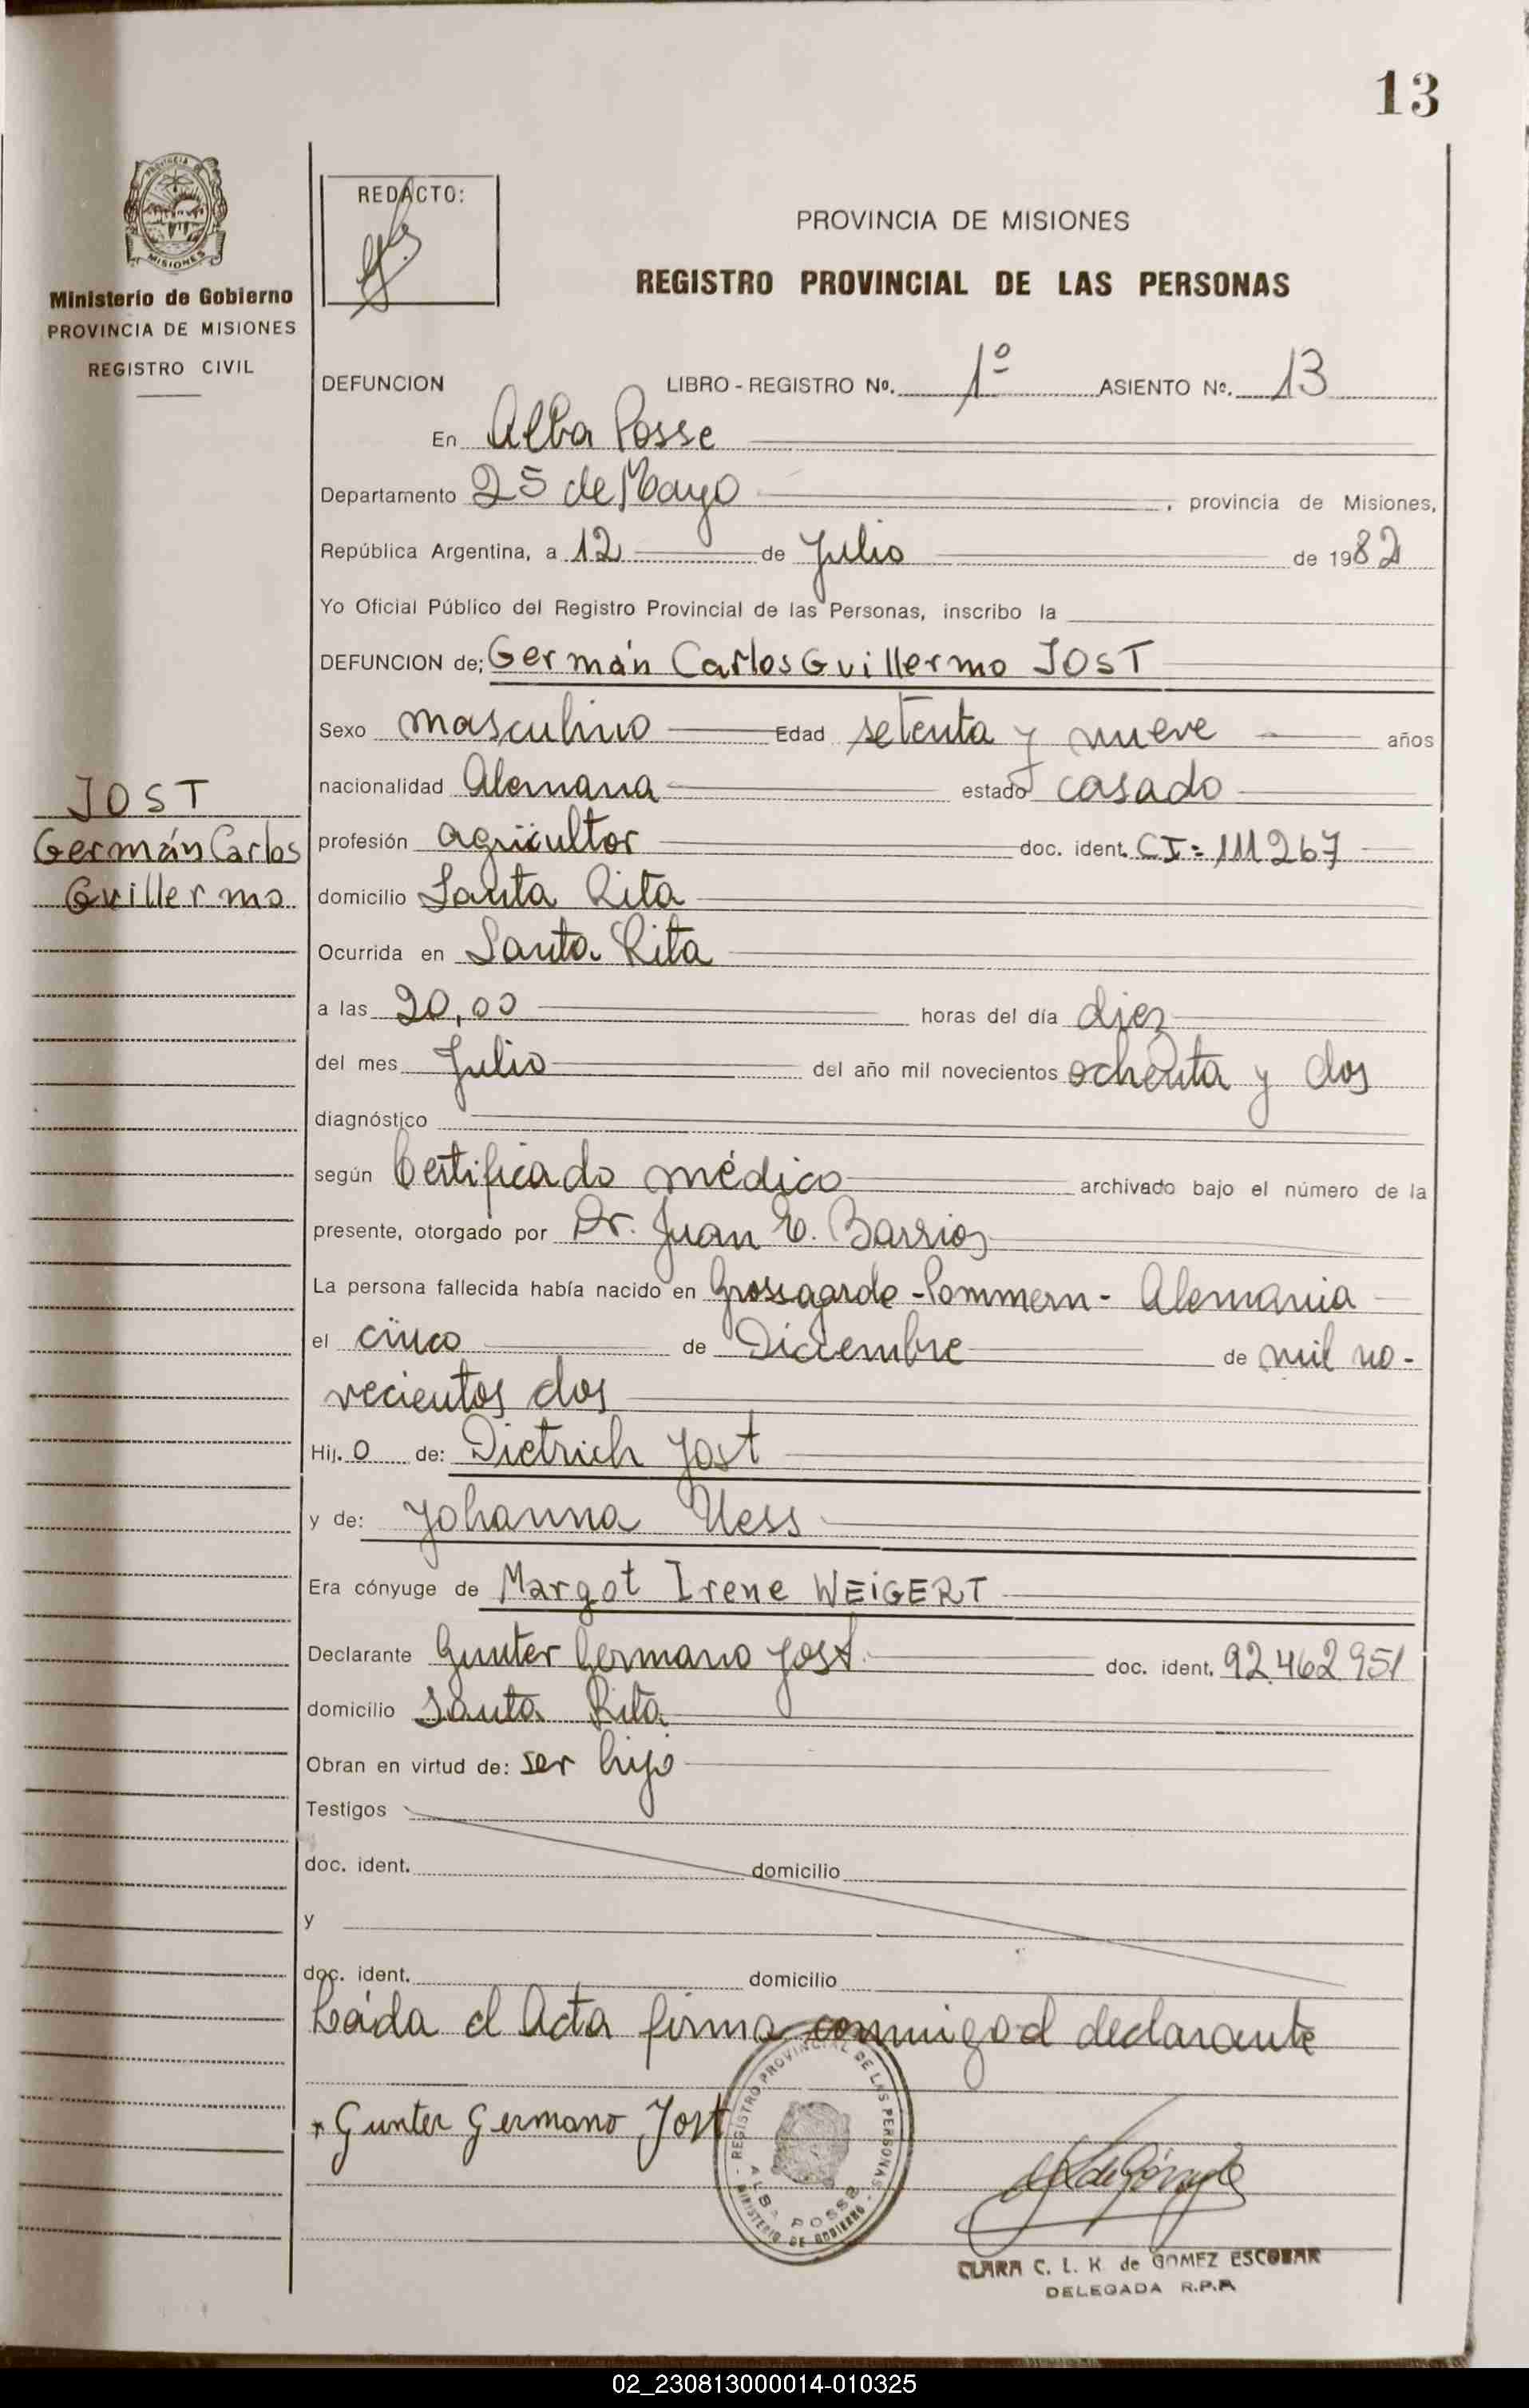 13
PROVINCIA
MISIONES
Ministerio de Gobierno
PROVINCIA DE MISIONES
REGISTRO CIVIL
REDACTO:
PROVINCIA DE MISIONES
REGISTRO PROVINCIAL DE LAS PERSONAS
DEFUNCION LIBRO - REGISTRO Nº. 1º ASIENTO Nº. 13
En Alba Posse
Departamento 25 de Mayo, provincia de Misiones,
República Argentina, a 12 de Julio de 1982
Yo Oficial Público del Registro Provincial de las Personas, inscribo la
DEFUNCION de; Germán Carlos Guillermo JOST
Sexo masculino Edad setenta y nueve años
nacionalidad Alemana estado casado
JOST
Germán Carlos
Guillermo
profesión agricultor doc. ident. CI= 111267
domicilio Santa Rita
Ocurrida en Santa Rita
a las 20,00 horas del día diez
del mes Julio del año mil novecientos ochenta y dos
diagnóstico
según Certificado médico archivado bajo el número de la
presente, otorgado por Dr. Juan E. Barrios
La persona fallecida había nacido en Grossgarde - Pommern - Alemania
el cinco de Diciembre de mil no-
vecientos dos
Hij.o de: Dietrich Jost
y de: Johanna
Era cónyuge de Margot Irene WEIGERT
Declarante Gunter Germano Jost doc. ident. 92.462951
domicilio Santa Rita
Obran en virtud de: ser hijo
Testigos
doc. ident. domicilio
y
doc. ident. domicilio
Leída el Acta firma conmigo el declarante
Gunter Germano Jost
REGISTRO PROVINCIAL DE LAS PERSONAS
ALBA POSSE
MINISTERIO DE GOBIERNO
CLARA C. L. K de GOMEZ ESCOBAR
DELEGADA R.P.P.
02_230813000014-010325